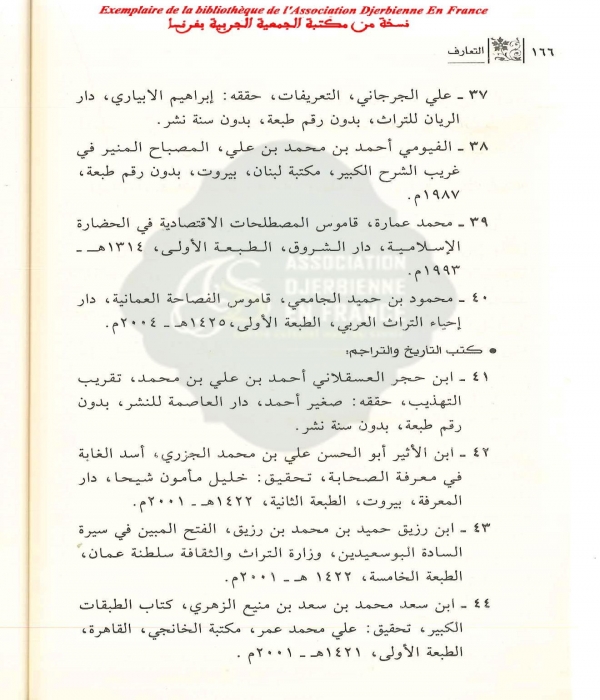 Exemplaire de la bibliothèque de l'Association Djerbienne En France
نسخة من مكتبة الجمعية الجربية بفرنسا
١٦٦ التعارف
٣٧ ـ علي الجرجاني، التعريفات، حققه: إبراهيم الابياري، دار
الريان للتراث، بدون رقم طبعة، بدون سنة نشر.
٣٨ ـ الفيومي أحمد بن محمد بن علي، المصباح المنير في
غريب الشرح الكبير، مكتبة لبنان، بيروت، بدون رقم طبعة،
١٩٨٧م.
٣٩ ـ محمد عمارة، قاموس المصطلحات الاقتصادية في الحضارة
الإسلامية، دار الشروق، الطبعة الأولى، ١٣١٤هـ ـ
١٩٩٣م.
ASSOCIATION
DJERBIENNE
EN FRANCE
٤٠ ـ محمود بن حميد الجامعي، قاموس الفصاحة العمانية، دار
إحياء التراث العربي، الطبعة الأولى، ١٤٢٥هـ ـ ٢٠٠٤م.
• كتب التاريخ والتراجم:
٤١ ـ ابن حجر العسقلاني أحمد بن علي بن محمد، تقريب
التهذيب، حققه: صغير أحمد، دار العاصمة للنشر، بدون
رقم طبعة، بدون سنة نشر.
٤٢ ـ ابن الأثير أبو الحسن علي بن محمد الجزري، أسد الغابة
في معرفة الصحابة، تحقيق: خليل مأمون شيحا، دار
المعرفة، بيروت، الطبعة الثانية، ١٤٢٢هـ ـ ٢٠٠١م.
٤٣ ـ ابن رزيق حميد بن محمد بن رزيق، الفتح المبين في سيرة
السادة البوسعيدين، وزارة التراث والثقافة سلطنة عمان،
الطبعة الخامسة، ١٤٢٢ هـ ـ ٢٠٠١م.
٤٤ ـ ابن سعد محمد بن سعد بن منيع الزهري، كتاب الطبقات
الكبير، تحقيق: علي محمد عمر، مكتبة الخانجي، القاهرة،
الطبعة الأولى، ١٤٢١هـ ـ ٢٠٠١م .